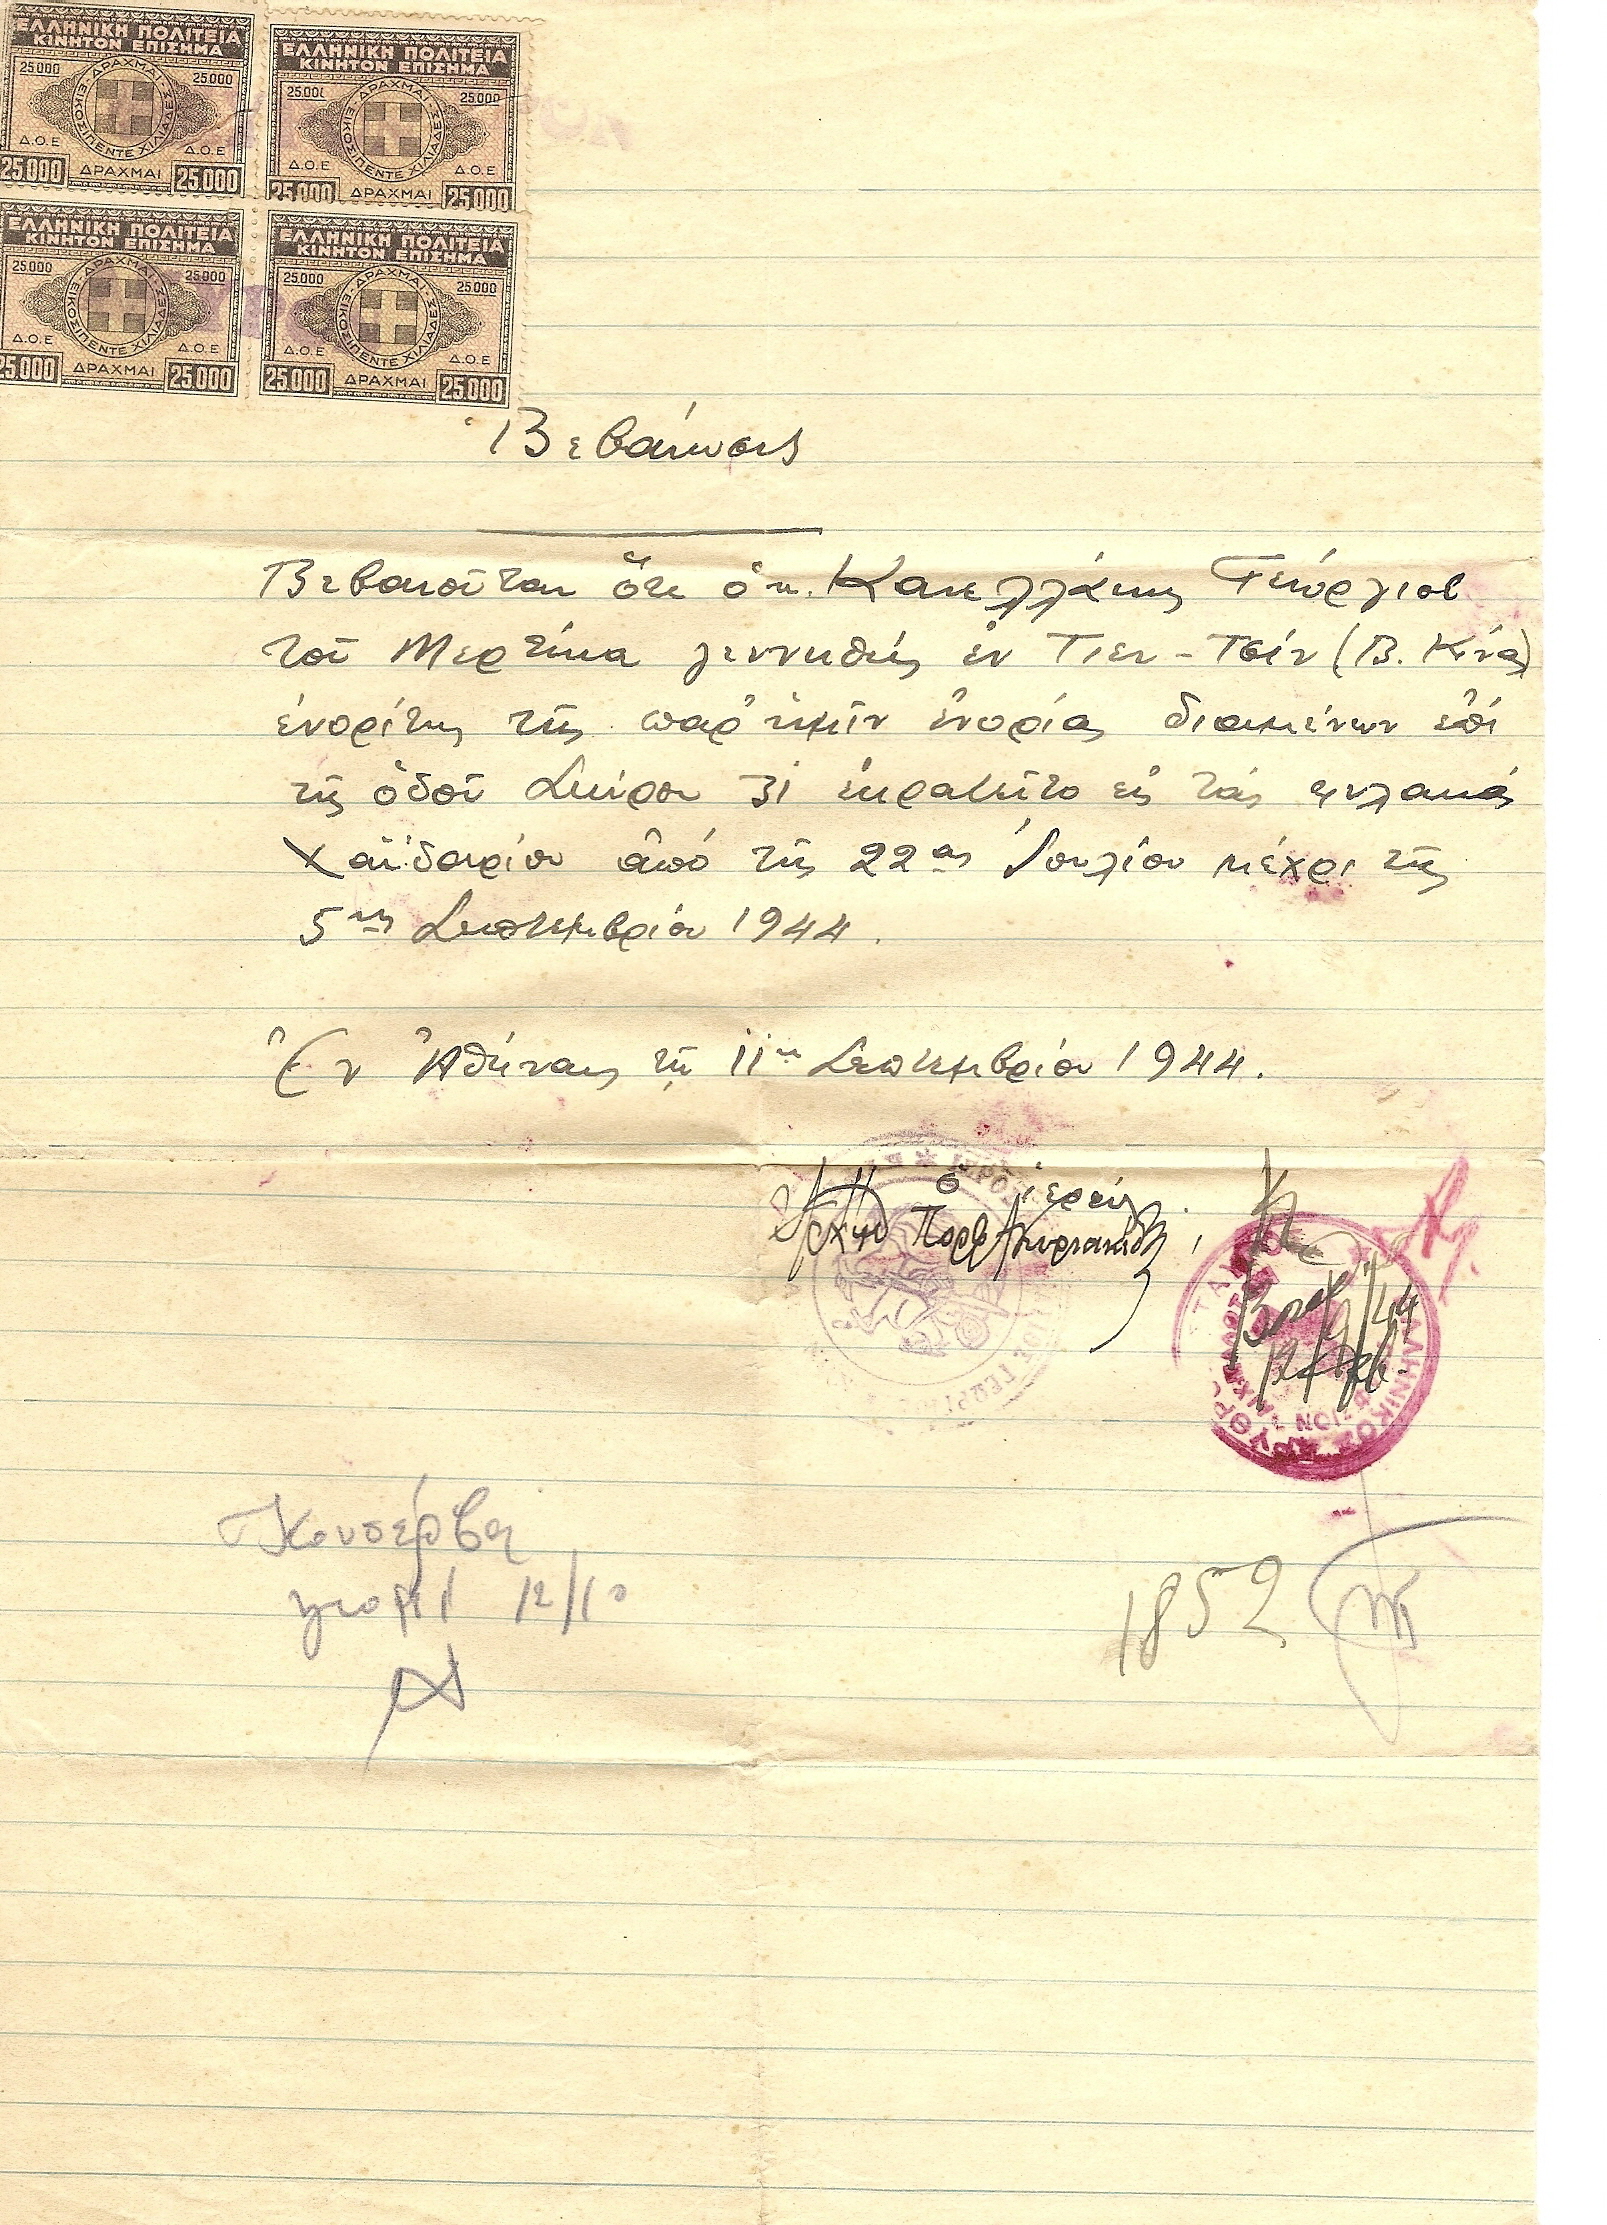 ΕΛΛΗΝΙΚΗ ΠΟΛΙΤΕΙΑ
ΚΙΝΗΤΟΝ ΕΠΙΣΗΜΑ
25.000 25.000
ΔΡΑΧΜΑΙ · ΕΙΚΟΣΙΠΕΝΤΕ ΧΙΛΙΑΔΕΣ
Δ.Ο.Ε Δ.Ο.Ε
25.000 ΔΡΑΧΜΑΙ 25.000
ΕΛΛΗΝΙΚΗ ΠΟΛΙΤΕΙΑ
ΚΙΝΗΤΟΝ ΕΠΙΣΗΜΑ
25.000 25.000
ΔΡΑΧΜΑΙ · ΕΙΚΟΣΙΠΕΝΤΕ ΧΙΛΙΑΔΕΣ
Δ.Ο.Ε Δ.Ο.Ε
25.000 ΔΡΑΧΜΑΙ 25.000
ΕΛΛΗΝΙΚΗ ΠΟΛΙΤΕΙΑ
ΚΙΝΗΤΟΝ ΕΠΙΣΗΜΑ
25.000 25.000
ΔΡΑΧΜΑΙ · ΕΙΚΟΣΙΠΕΝΤΕ ΧΙΛΙΑΔΕΣ
Δ.Ο.Ε Δ.Ο.Ε
25.000 ΔΡΑΧΜΑΙ 25.000
ΕΛΛΗΝΙΚΗ ΠΟΛΙΤΕΙΑ
ΚΙΝΗΤΟΝ ΕΠΙΣΗΜΑ
25.000 25.000
ΔΡΑΧΜΑΙ · ΕΙΚΟΣΙΠΕΝΤΕ ΧΙΛΙΑΔΕΣ
Δ.Ο.Ε Δ.Ο.Ε
25.000 ΔΡΑΧΜΑΙ 25.000
Βεβαίωσις
Βεβαιοῦται ὅτι ὁ κ. Κανελλάκης Γεώργιος
τοῦ Μερτίκα γεννηθείς ἐν Τιεν-Τσίν (Β. Κίνας)
ἐνορίτης τῆς παρ' ἡμῖν ἐνορίας διαμένων ἐπί
τῆς ὁδοῦ Σκύρου 31 ἐκρατεῖτο εἰς τάς φυλακάς
Χαϊδαρίου ἀπό τῆς 22ας Ἰουλίου μέχρι τῆς
5ης Σεπτεμβρίου 1944.
Ἐν Ἀθήναις τῇ 11ῃ Σεπτεμβρίου 1944.
ὁ ἱερεύς
Ἀρχιμ Πορφ Κυριακίδης
12/9/44
Κονσέρβα
γιομί 12/10
1852